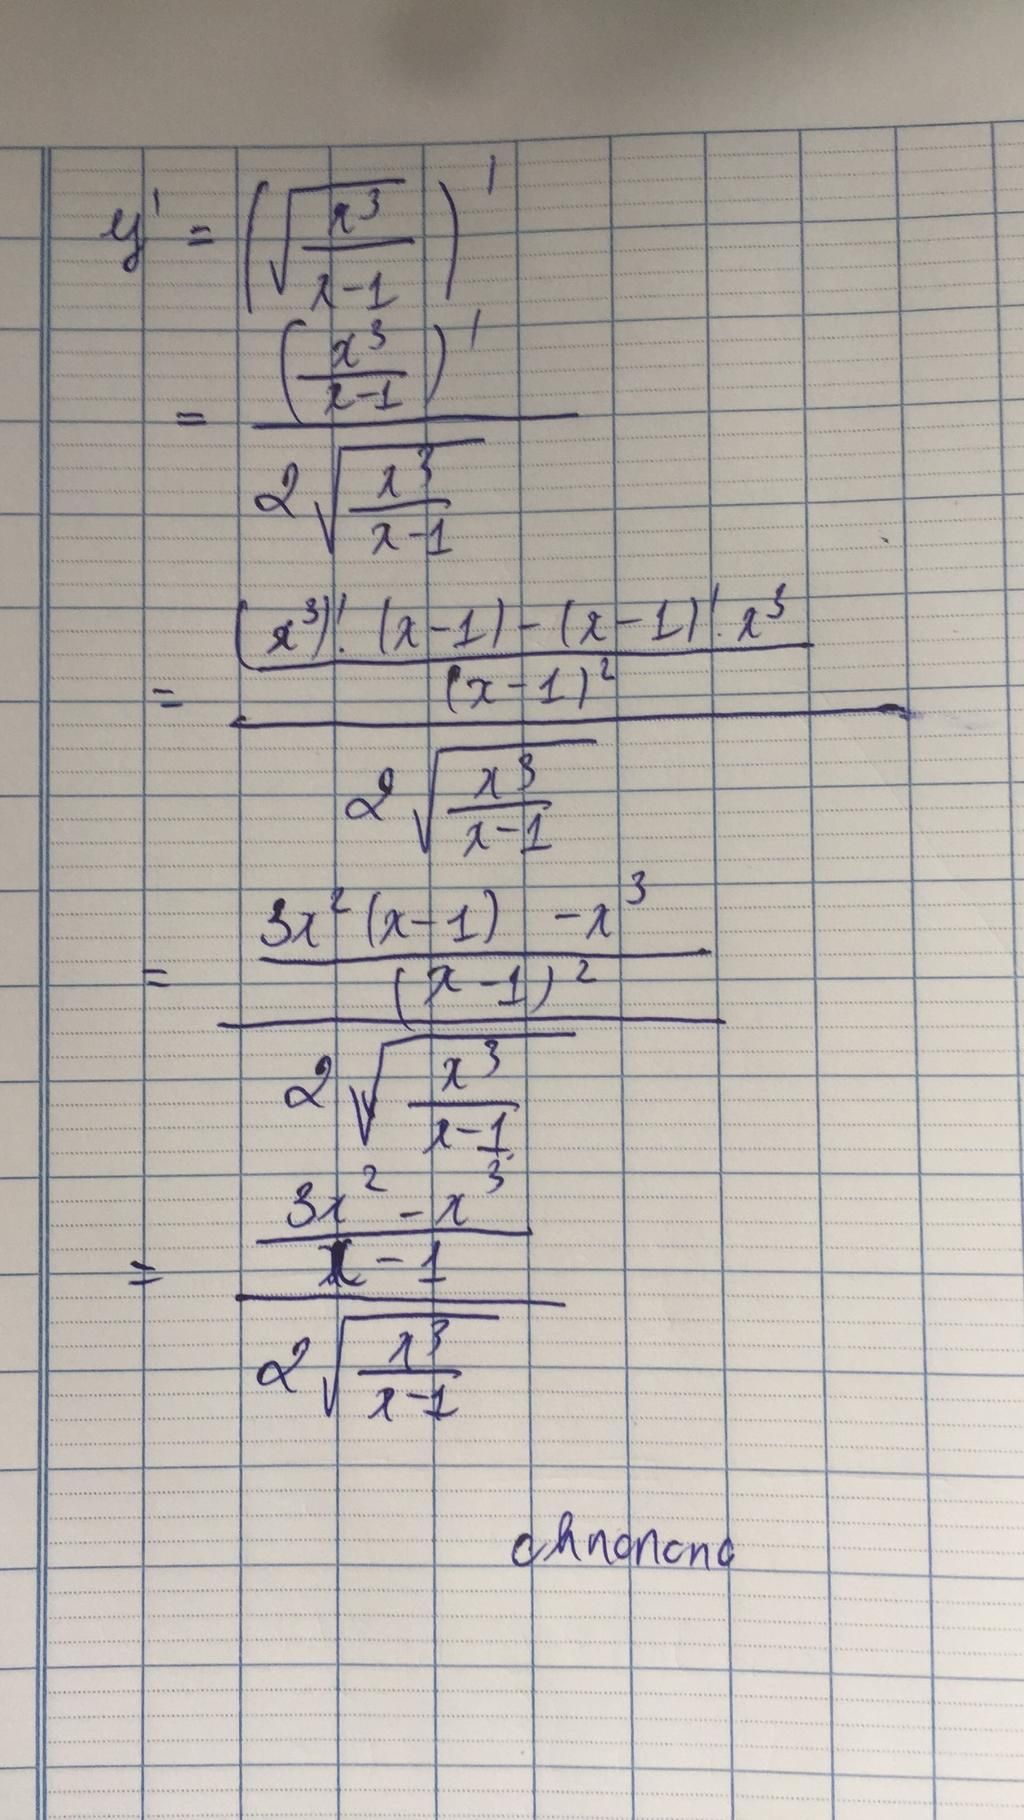 y' = (√(x³/(x-1)))'
= (x³/(x-1))' / (2√(x³/(x-1)))
= (((x³)'.(x-1)-(x-1)'.x³)/(x-1)²) / (2√(x³/(x-1)))
= ((3x²(x-1) -x³)/(x-1)²) / (2√(x³/(x-1)))
= ((3x² - x³)/(x-1)) / (2√(x³/(x-1)))